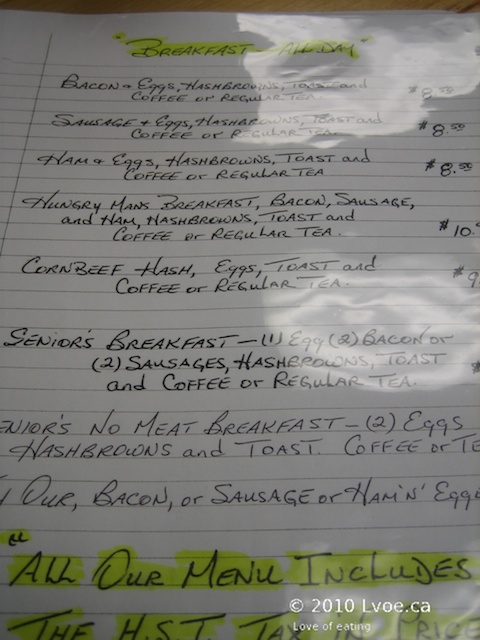 "BREAKFAST - ALL DAY"
BACON & Eggs, HASHBROWNS, TOAST and $8.50
COFFEE or REGULAR TEA.
SAUSAGE & Eggs, HASHBROWNS, TOAST and $8.50
COFFEE or REGULAR TEA.
HAM & Eggs, HASHBROWNS, TOAST and $8.50
COFFEE or REGULAR TEA
HUNGRY MANS BREAKFAST, BACON, SAUSAGE,
and HAM, HASHBROWNS, TOAST and $10.
COFFEE or REGULAR TEA.
CORNBEEF HASH, Eggs, TOAST and $9
COFFEE or REGULAR TEA.
SENIOR'S BREAKFAST - (1) Egg (2) BACON or
(2) SAUSAGES, HASHBROWNS, TOAST
and COFFEE or REGULAR TEA.
ENIOR'S NO MEAT BREAKFAST - (2) Eggs
HASHBROWNS and TOAST. COFFEE or TE
Y OUR, BACON, or SAUSAGE or HAM 'N' Eggs
"ALL OUR MENU INCLUDES
THE H.S.T. TAX
© 2010 Lvoe.ca
Love of eating